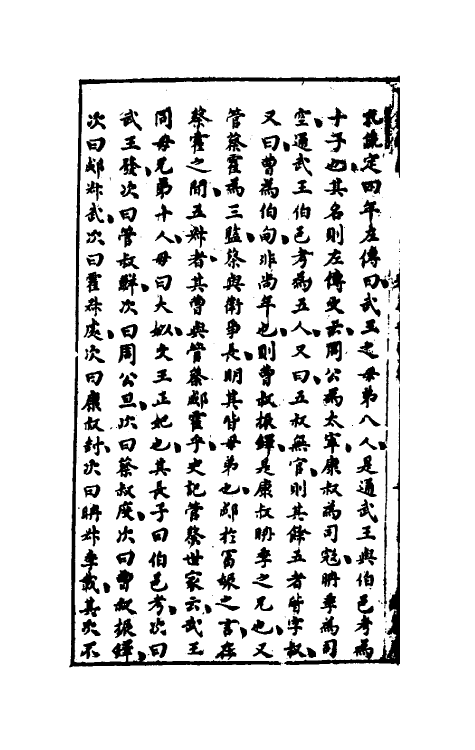 孔疏定四年左傳曰武王之母弟八人是通武王與伯邑考為
十子也其名則左傳又云周公為太宰康叔為司寇聃季為司
空通武王伯邑考為五人又曰五叔無官則其餘五者皆字叔
又曰曹為伯甸非尚年也則曹叔振鐸是康叔聃季之兄也又
管蔡霍為三監蔡與衛爭長明其皆母弟也郕於富辰之言在
蔡霍之間五叔者其曹與管蔡郕霍乎史記管蔡世家云武王
同母兄弟十人母曰大姒文王正妃也其長子曰伯邑考次曰
武王發次曰管叔鮮次曰周公旦次曰蔡叔度次曰曹叔振鐸
次曰郕叔武次曰霍叔處次曰康叔封次曰聃叔季載其次不